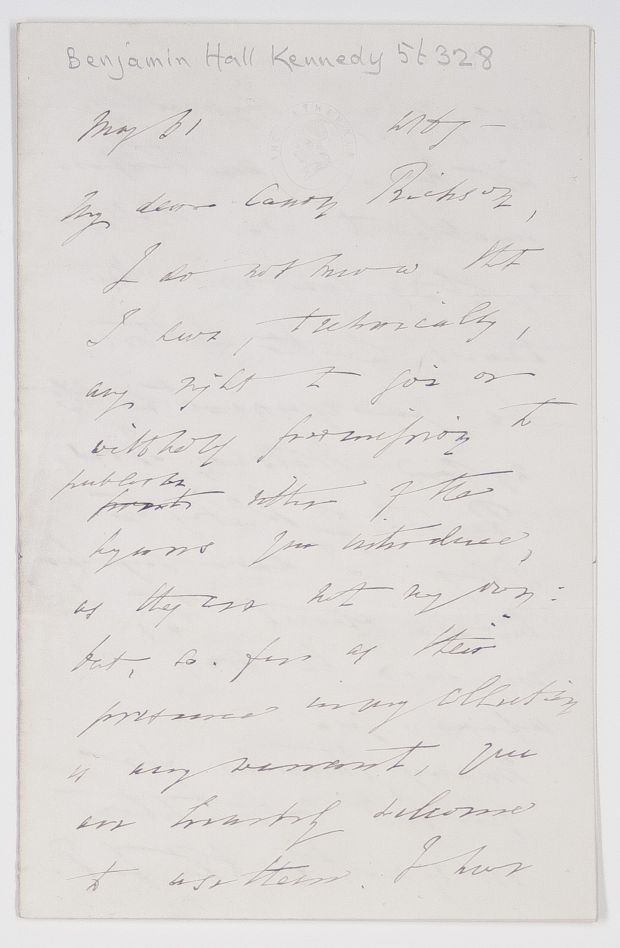 Benjamin Hall Kennedy 5t 328
May 31
My dear Canon Rickson,
I do not know that
I have, technically,
any right to give or
withhold permission to
publish
print either of the
hymns you introduce,
as they are not my own:
but, so far as their
presence in my collection
is any warrant, you
are heartily welcome
to use them. I have